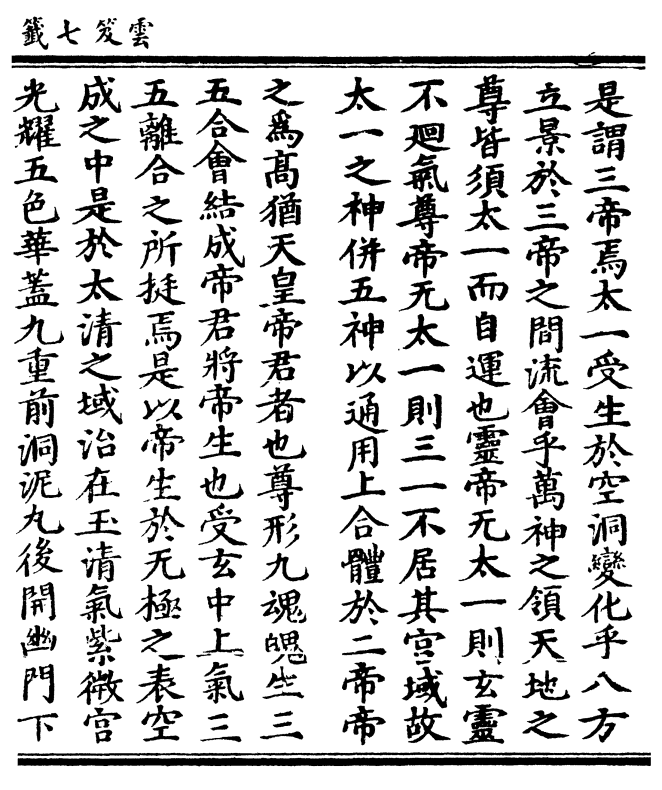 雲笈七籤
是謂三帝焉太一受生於空洞變化乎八方
立景於三帝之間流會乎萬神之領天地之
尊皆須太一而自運也靈帝无太一則玄靈
不廻氣尊帝无太一則三一不居其宮域故
太一之神併五神以通用上合體於二帝帝
之爲高猶天皇帝君者也尊形九魂魄生三
五合會結成帝君將帝生也受玄中上氣三
五離合之所挻焉是以帝生於无極之表空
成之中是於太清之域治在玉清氣紫微宮
光耀五色華蓋九重前洞泥丸後開幽門下